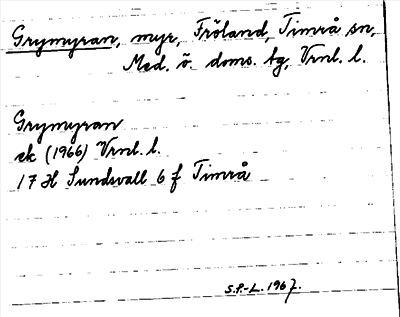 Grymyran, myr, Fröland, Timrå sn,
Med. ö. doms. tg, Vrnl. l.
Grymyran
ek (1966) Vrnl. l.
17 H Sundsvall 6 f Timrå
S.P.-L. 1967.